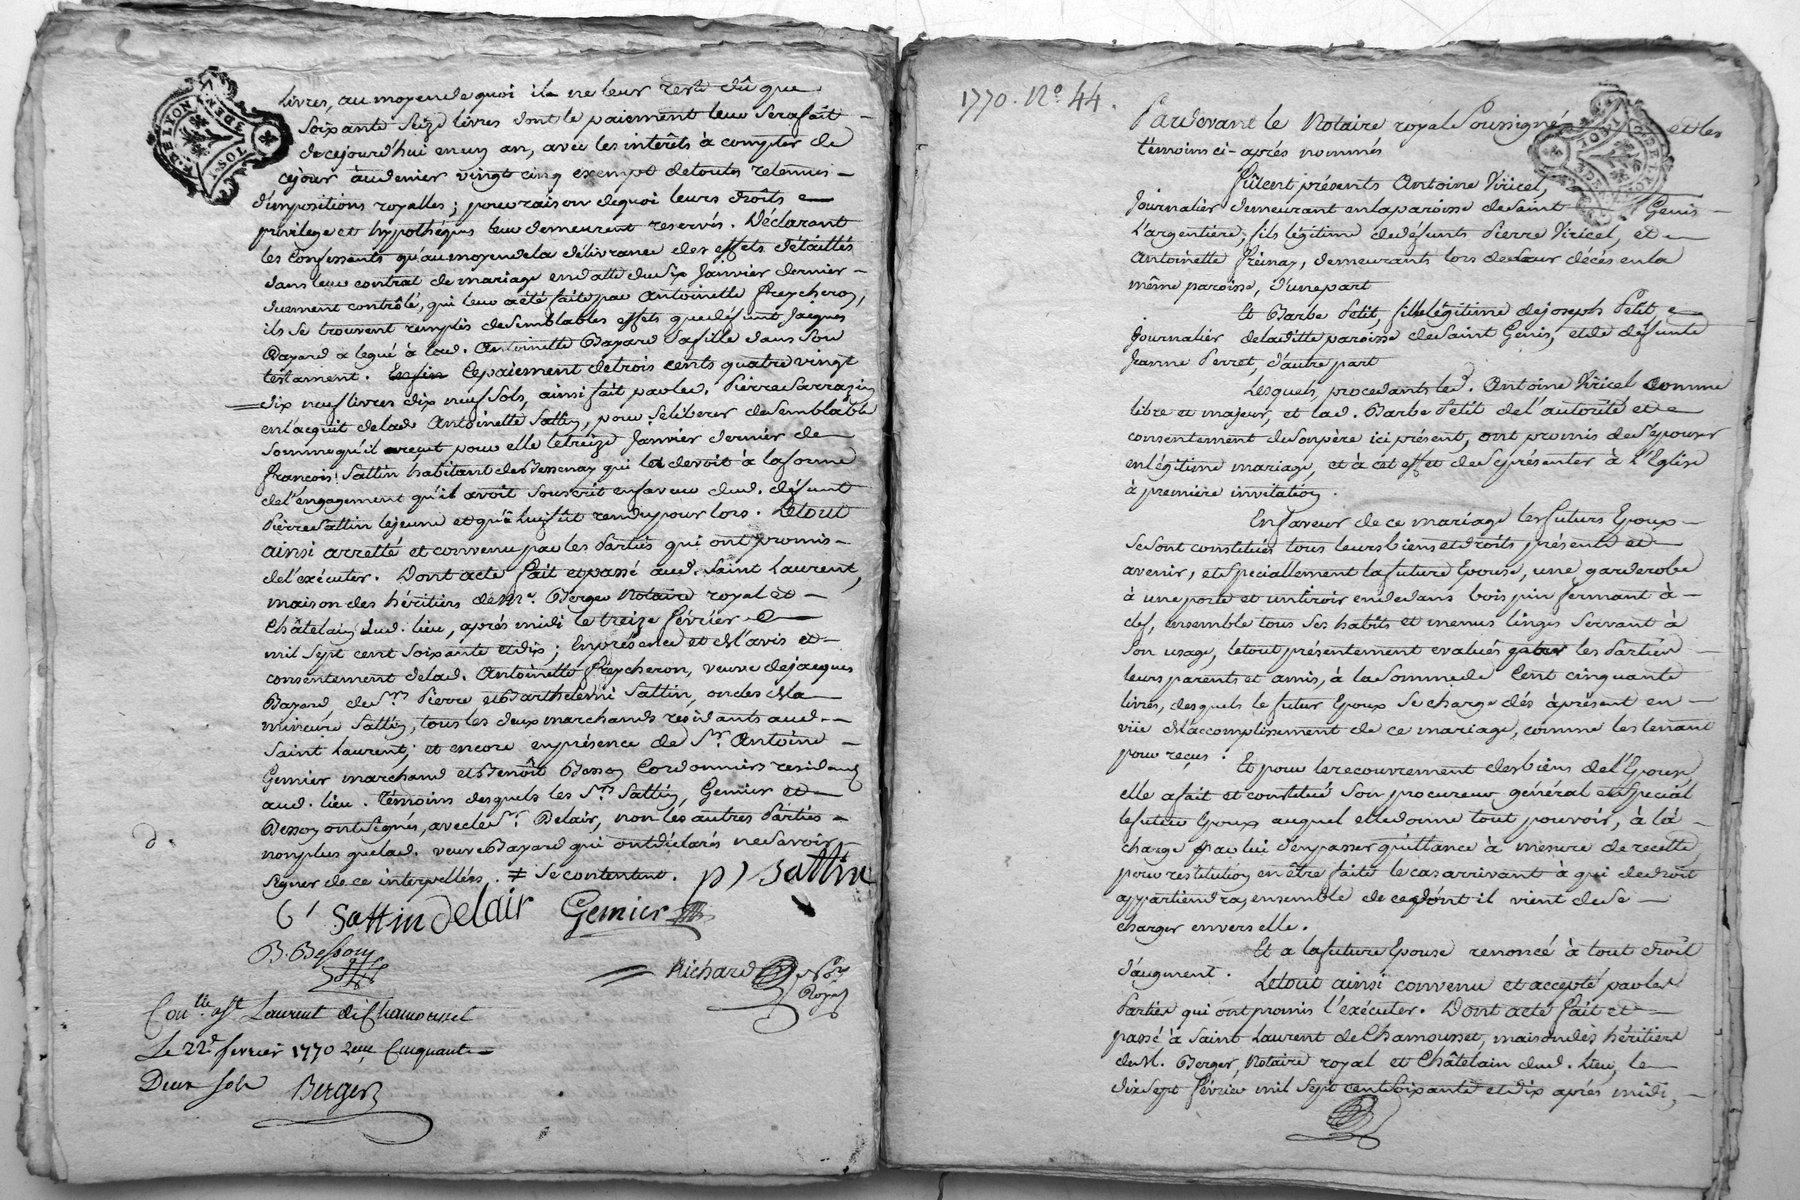 livres, au moyen de quoi il ne leur reste dû que
soixante seize livres dont le paiement leur sera fait
de ce jourd'hui en un an, avec les intérêts à compter de
ce jour au denier vingt cinq exempt de toutes retenues
d'impositions royalles; pour raison de quoi leurs droits
privilege et hypothéques leur demeurent reservés. Déclarant
les Confessants qu'au moyen de la délivrance des effets détaillés
dans leur contrat de mariage en datte du six Janvier dernier
duement contrôlé, qui leur a été faite par Antoinette Freycheron,
ils se trouvent remplis de semblables effets que défunt Jacques
Bazard a legué à lad. Antoinette Bazard sa fille dans son
testament. Enfin le paiement de trois cents quatre vingt
dix neuf livres dix neuf sols, ainsi fait par led. Pierre Sarrazin
en l'acquit de lad. Antoinette Sattin, pour se libérer de semblable
somme qu'il a reçut pour elle le treize Janvier dernier de
françois Sattin habitant de Bessenay qui la devoit à la forme
de l'engagement qu'il avoit souscrit en faveur dud. défunt
Pierre Sattin le jeune et qu'à lui fût rendu pour lors. Le tout
ainsi arretté et convenu par les Parties qui ont promis
de l'exécuter. Dont acte fait et passé aud. Saint Laurent,
maison des héritiers de Me. Berger Notaire royal et
Châtelain dud. lieu, après midi le treize février
mil sept cent soixante et dix; En présence et de l'avis et
consentement de lad. Antoinette Freycheron, veuve de jacques
Bazard, de Srs Pierre et Barthelemi Sattin, oncles de la
mineure Sattin, tous les deux marchands résidants aud.
Saint Laurent; et encore en présence de Sr. Antoine
Gemier marchand et Benoît Besson Cordonnier residents
aud. lieu. témoins desquels les Srs. Sattin, Gemier et
Besson ont signés, avec le Sr. Delair, non les autres Parties
non plus que lad. veuve Bazard qui ont déclarés ne savoir
signer de ce interpellés. ≠ se contentent. p) Sattin
Sattin delair Gemier
B. Besson
Richard Nre Royal
Conlle à St Laurent de Chamousset
Le 22d. fevrier 1770 reçu Cinquante
Deux sols Berger
1770. No. 44.
Pardevant le Notaire royal Soussigné et les
témoins ci-après nommés
Fûrent présents Antoine Viricel,
Journalier demeurant en la paroisse de Saint Genis
L'argentière, fils légitime de défunts Pierre Viricel, et
Antoinette Freinay, demeurants lors de leur décés en la
même paroisse, d'une part
Et Barbe Petit, fille légitime de joseph Petit,
Journalier de laditte paroisse de Saint Genis, et de défunte
Jeanne Perret, d'autre part
Lesquels, procedants led. Antoine Viricel comme
libre et majeur, et lad. Barbe Petit de l'autorité et
consentement de son père ici présent, ont promis de s'épouser
en légitime mariage, et à cet effet de se présenter à L'Eglise
à première invitation.
En faveur de ce mariage les futurs Epoux
se sont constitués tous leurs biens et droits, présents et
avenir, et spéciallement la future Epouse, une garderobe
à une porte et un tiroir en dedans bois pin fermant à
clef, ensemble tous ses habits et menus linges servant à
son usage, le tout présentement evalués par les Parties
leurs parents et amis, à la somme de Cent cinquante
livres, desquels le futur Epoux se charge dés à présent en
vüe de l'accomplissement de ce mariage, comme les tenant
pour reçus. Et pour le recouvrement des biens de l'Epouse,
elle a fait et constitué son procureur général et spécial
le futur Epoux auquel elle donne tout pouvoir, à la
charge par lui d'en passer quittance à mesure de recette
pour restitution en être faite le cas arrivant à qui de droit
appartiendra, ensemble de ce dont il vient de se
charger envers elle.
Et a la future Epouse renoncé à tout droit
d'augment. Le tout ainsi convenu et accepté par les
Parties qui ont promis l'exécuter. Dont acte fait et
passé à Saint Laurent de Chamousset, maison des héritiers
de M. Berger, Notaire royal et Châtelain dud. Lieu, le
dix sept février mil sept cent soixante et dix après midi,